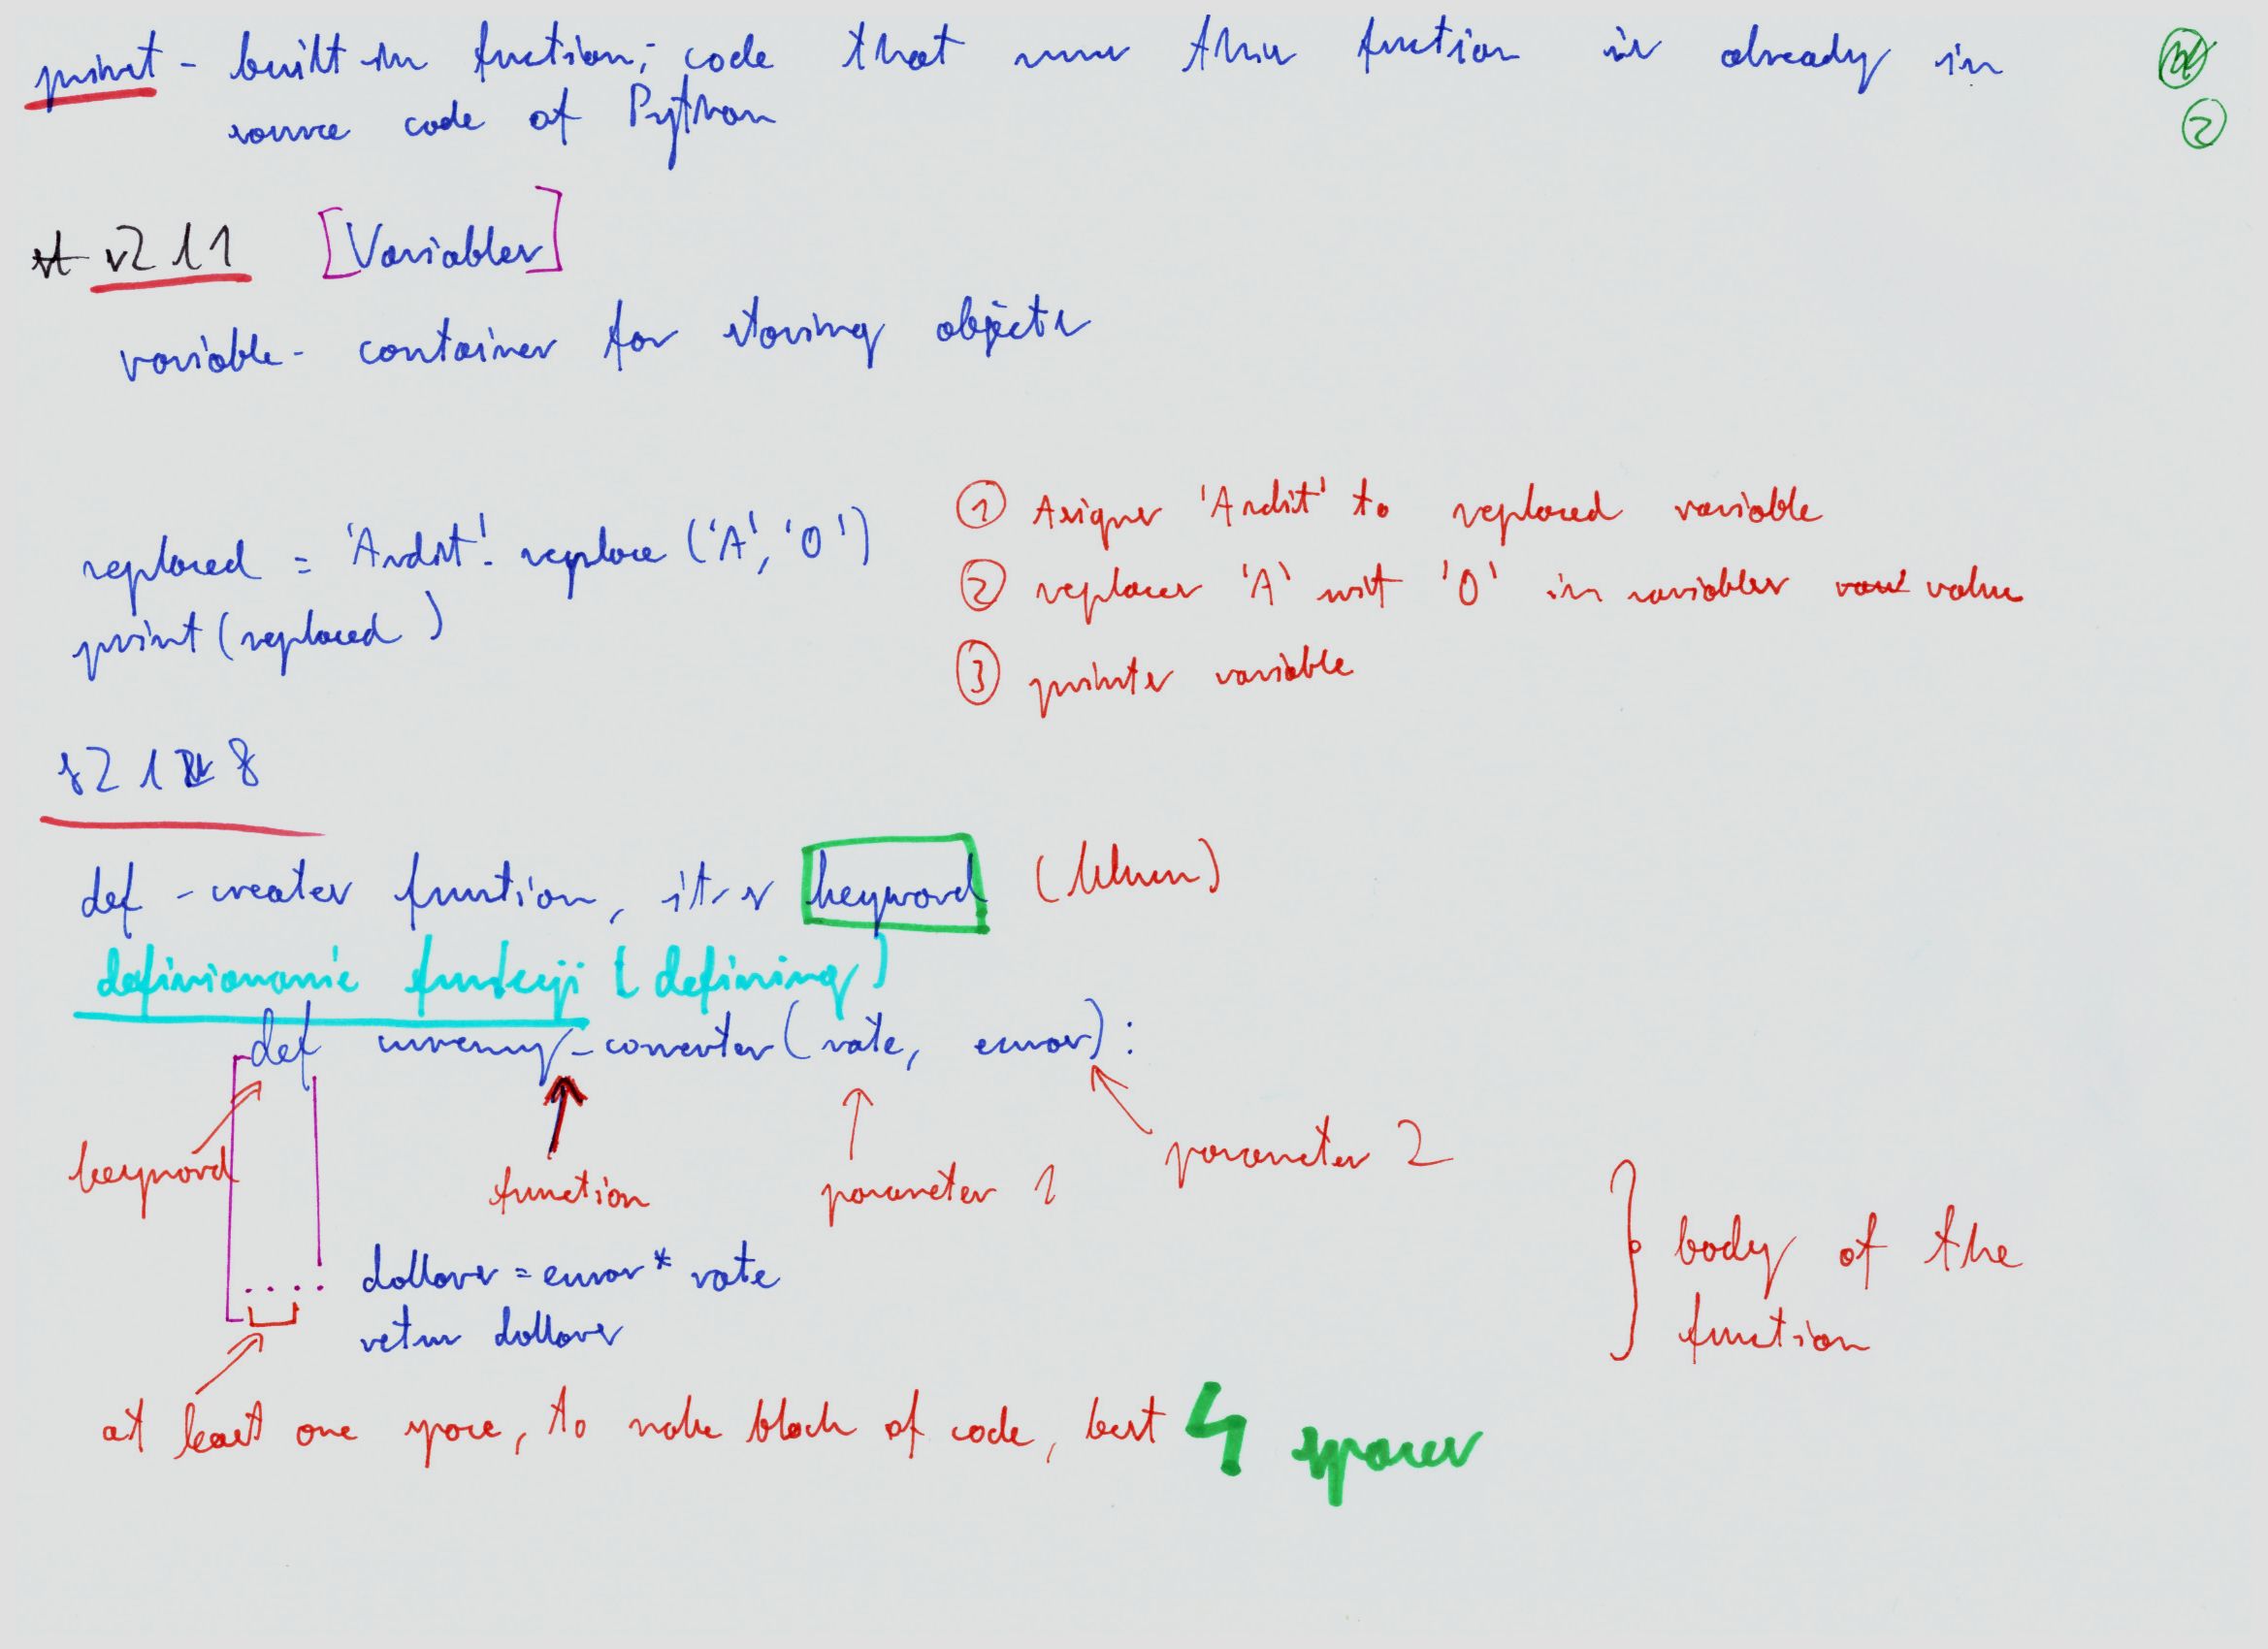 print - built-in fuction; code that runs this fuction is already in
source code of Python
2
s2 11 [Variables]
variable - container for storing objects
replaced = 'Ardit'.replace('A', 'O')
print(replaced)
① Asigns 'Ardit' to replaced variable
② replaces 'A' wit 'O' in variables value
③ prints variable
s2 1 8
def - creates funtion, it's keyword
definionanie funkcji (defining)
def currency_converter(rate, euros):
keyword
function
parameter 1
parameter 2
dollars = euros * rate
return dollars
body of the
function
at least one space, to make block of code, best 4 spaces